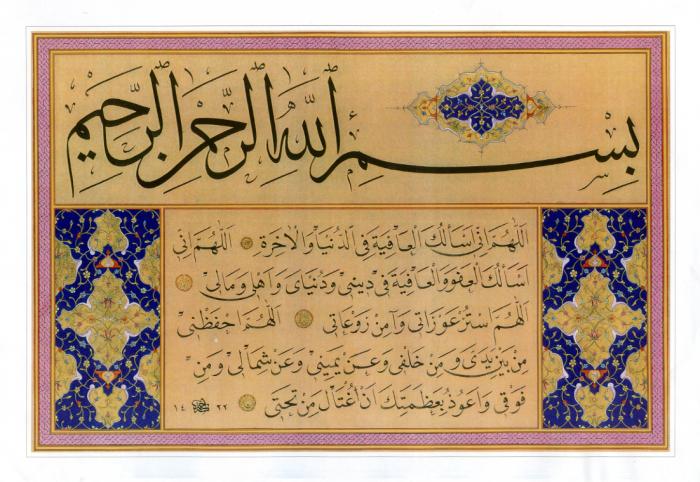 بِسْمِ اللّٰهِ الرَّحْمٰنِ الرَّحِيمِ
اَللّٰهُمَّ اِنِّي اَسْاَلُكَ الْعَافِيَةَ فِي الدُّنْيَا وَالْاٰخِرَةِ اَللّٰهُمَّ اِنِّي
اَسْاَلُكَ الْعَفْوَ وَالْعَافِيَةَ فِي دِينِي وَدُنْيَايَ وَاَهْلِي وَمَالِي
اَللّٰهُمَّ اسْتُرْ عَوْرَاتِي وَاٰمِنْ رَوْعَاتِي اَللّٰهُمَّ احْفَظْنِي
مِنْ بَيْنِ يَدَيَّ وَمِنْ خَلْفِي وَعَنْ يَمِينِي وَعَنْ شِمَالِي وَمِنْ
فَوْقِي وَاَعُوذُ بِعَظَمَتِكَ اَنْ اُغْتَالَ مِنْ تَحْتِي ١٤ ٢٢